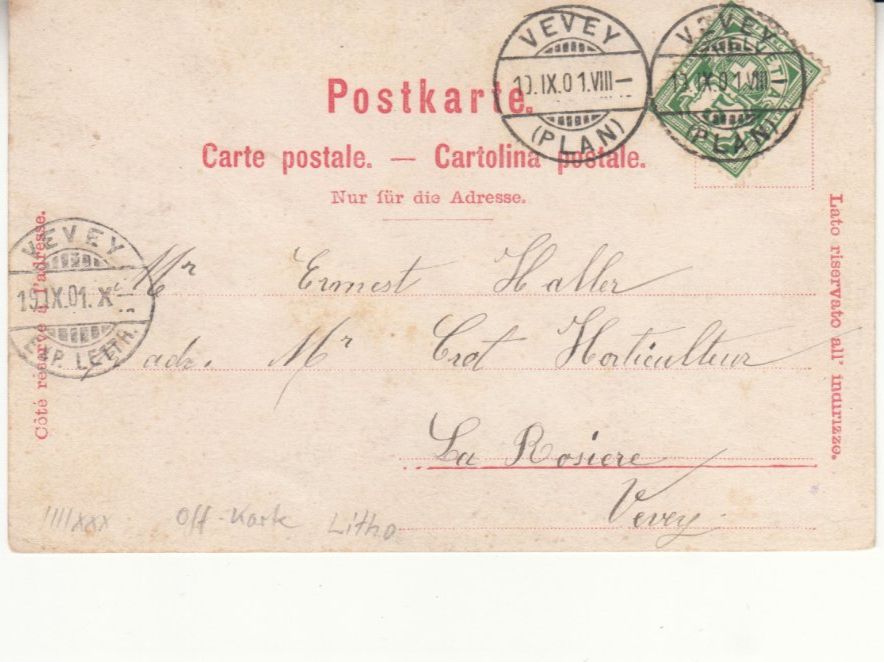 Postkarte.
Carte postale. — Cartolina postale.
Nur für die Adresse.
VEVEY
19.IX.01.VIII—
(PLAN)
VEVEY
19.IX.01.VIII
(PLAN)
HELVETIA
Côté réservé à l'adresse.
Lato riservato all' indirizzo.
VEVEY
19.IX.01. X—
EXP. LETTR.
Mr Ernest Haller
adr. Mr Crot Horticulteur
La Rosiere
Vevey
Off-Karte Litho